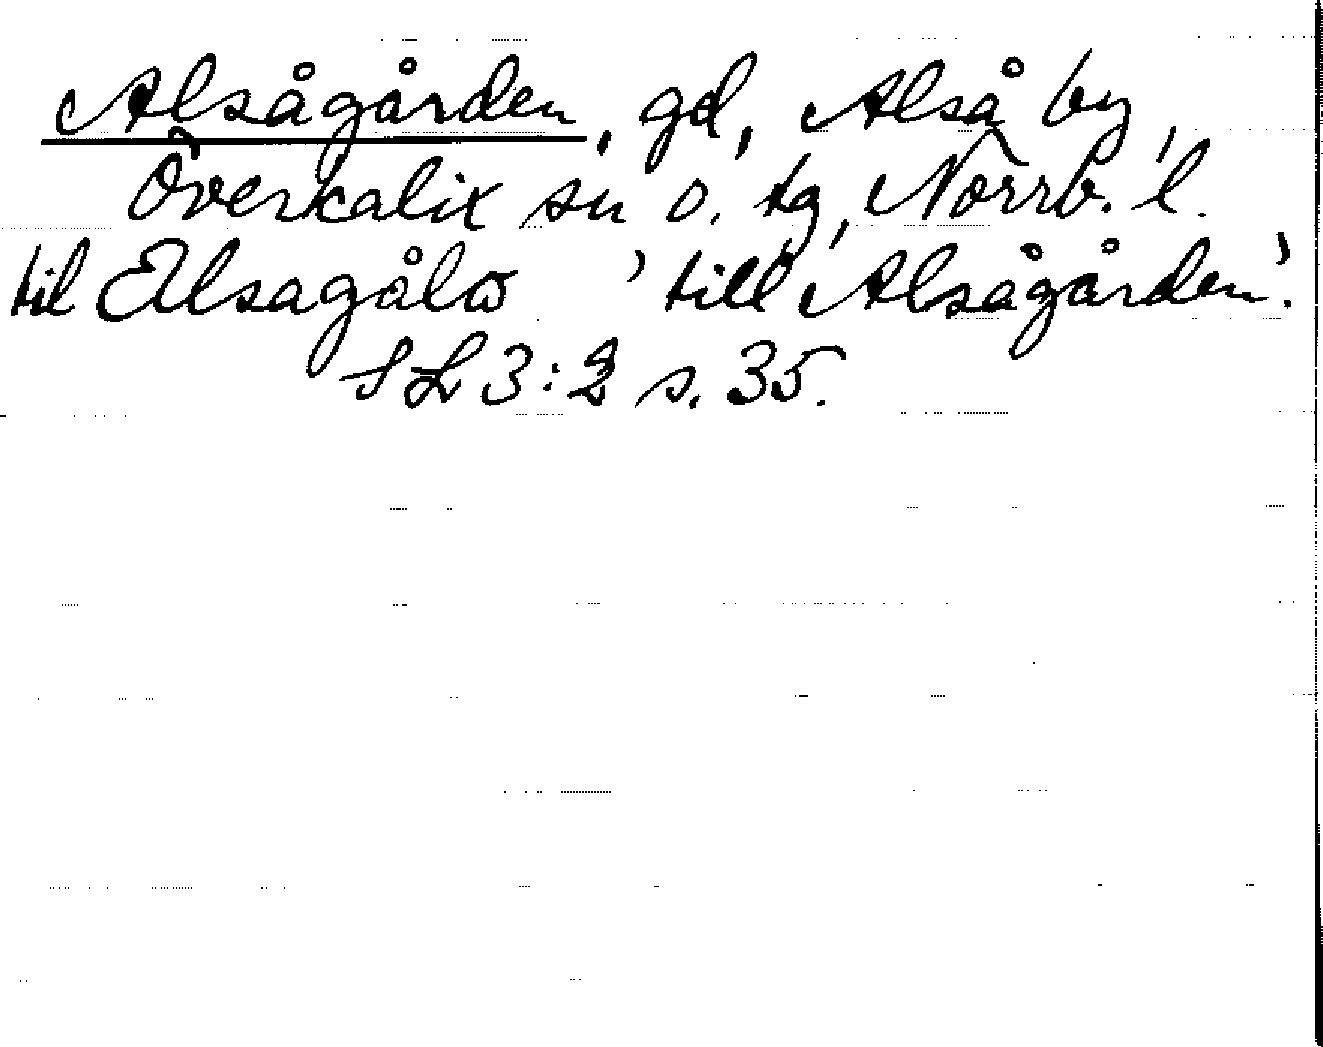 Alsågården, gd, Alså by,
Överkalix sn o. tg, Norrb. l.
til Ælsagålω 'till Alsågården'.
SL 3:2 s. 35.